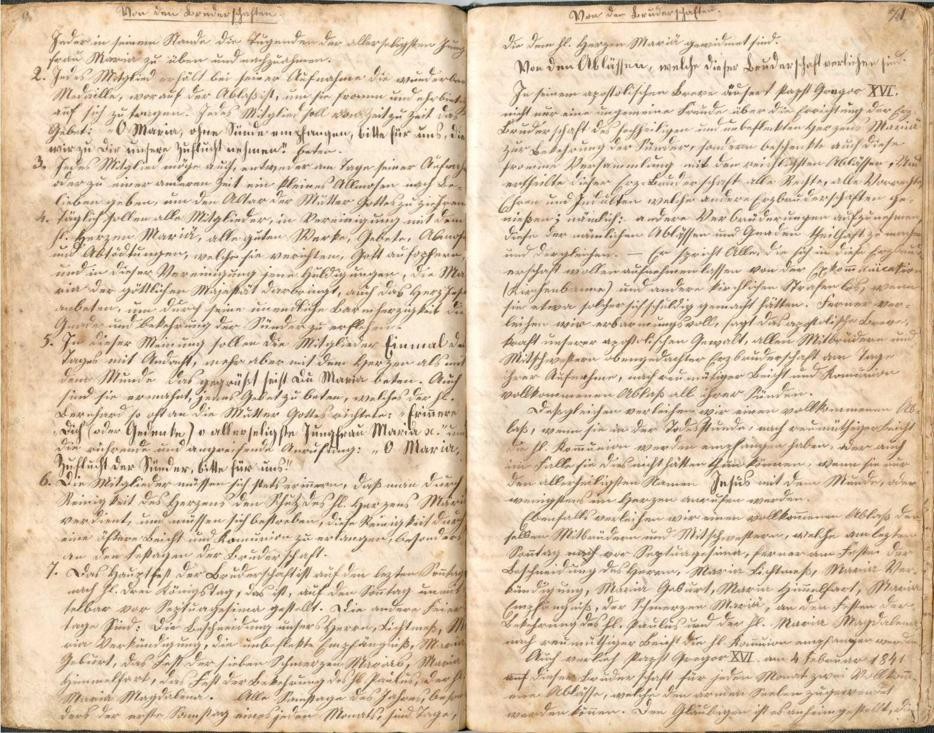 Von den Bruderschaften.
Jeder in seinem Stande die Tugenden der allerseligsten Jung
frau Maria zu üben und nachzuahmen.
2. Jedes Mitglied erhält bei seiner Aufnahme die wunderbare
Medaille, worauf der Ablaß ist, um sie fromm und ehrbiet
auf sich zu tragen. Jedes Mitglied soll von Zeit zu Zeit das
Gebet: "O Maria, ohne Sünde empfangen, bitte für uns, die
wir zu Dir unsere Zuflucht nehmen!" beten.
3. Jedes Mitglied möge auch, entweder am Tage seiner Aufnah
oder zu einer anderen Zeit ein kleines Allmosen nach Be-
lieben geben, um den Altar der Mutter Gottes zu zieren
4. Täglich sollen alle Mitglieder, in Vereinigung mit dem
hl. Herzen Mariä, alle guten Werke, Gebete, Almos
und Abtödtungen, welche sie verrichten, Gott aufopfern,
und in dieser Vereinigung jene Huldigungen, die Ma
ria der göttlichen Majestät darbringt, auch das Herz Jesu
anbeten, um durch seine unendliche Barmherzigkeit die
Gnade und Bekehrung der Sünder zu erflehen.
5. In dieser Meinung sollen die Mitglieder Einmal des
Tages mit Andacht, mehr aber mit dem Herzen als mit
dem Munde das gegrüßt seist du Maria beten. Auch
sind sie ermahnt, jenes Gebet zu beten, welches der hl.
Bernhard so oft an die Mutter Gottes richtete: "Erinnere
Dich (oder Gedenke) o allerseligste Jungfrau Maria ꝛc." und
die rührende und angenehme Anrufung: "O Maria,
Zuflucht der Sünder, bitte für uns!"
6. Die Mitglieder müssen sich stets erinnern, daß man durch
Reinigkeit des Herzens den Schutz des hl. Herzens Mariä
verdient, und müssen sich bestreben, diese Reinigkeit durch
eine öftere Beicht und Komunion zu erlangen, besonders
an den Festtagen der Bruderschaft.
7. Das Hauptfest der Bruderschaft ist auf den lezten Sonntag
nach hl. Drei Königstag, das ist, auf den Sonntag unmit
telbar vor Septuagesima gestellt. Die andere Feier
tage sind: Die Beschneidung unsers Herrn, Lichtmeß, Ma
ria Verkündigung, die unbefleckte Empfängniß, Mariä
Geburt, das Fest der sieben Schmerzen Mariä, Mariä
Himmelfart, das Fest der Bekehrung des hl. Paulus, der hl.
Maria Magdalena. Alle Samstage des Jahres beson
ders der erste Samstag eines jeden Monats, sind Tage,
Von den Bruderschaften.
die dem hl. Herzen Mariä gewidmet sind.
Von den Ablässen, welche dieser Bruderschaft verliehen sind.
In seinem apostolischen Breve äusert Papst Gregor XVI.
nicht nur eine ungemeine Freude über die Errichtung der Erz
Bruderschaft des hochheiligen und unbefleckten Herzens Mariä
zur Bekehrung der Sünder, sondern beschenkte auch diese
fromme Versammlung mit den reichlichsten Ablässen, und
ertheilte dieser Erz-Bruderschaft alle Rechte, alle Vorrechte
Ehren und Indulten welche andere Erzbruderschaften ge-
nießen; nämlich: andere Verbrüderungen aufzunehmen,
diese der nämlichen Ablässen und Gnaden theilhaft zu machen
und dergleichen. Er spricht Alle, die sich in diese Erzbrud
erschaft wollen aufnehmen lassen von der Exkommunication
(Kirchenbanne) und andere kirchlichen Strafen los, wenn
sie etwa solcher sich schuldig gemacht hätten. Ferner ver-
leihen wir erbarmungsvoll, sagt das apostolische Breve,
kraft unserer apostolischen Gewalt, allen Mitbrüdern und
Mitschwestern obengedachter Erzbruderschaft am Tage
ihrer Aufnahme, nach reumüthiger Beicht und Komunion
vollkommenen Ablaß all ihrer Sünden.
Desgleichen verleihen wir einen vollkommenen Ab-
laß, wenn sie in der Todesstunde, nach reumüthiger Beicht
die hl. Komunion werden empfangen haben, oder auch
im Falle sie dies nicht hätten thun können, wenn sie nur
den allerheiligsten Namen Jesus mit dem Munde, oder
wenigstens im Herzen anrufen werden.
Ebenfalls verleihen wir einen vollkommenen Ablaß den
selben Mitbrüdern und Mitschwestern, welche am lezten
Sonntag vor Septuagesima, ferner am Festen der
Beschneidung des Herrn, Maria Lichtmeß, Maria Ver-
kündigung, Maria Geburt, Maria Himmelfart, Maria
Empfängniß, der Schmerzen Mariä, an den Festen der
Bekehrung des hl. Paulus und der hl. Maria Magdalena
nach reumütiger Beicht die hl. Komunion empfangen werden
Auch verlieh Papst Gregor XVI. am 4 Februar 1841
dieser Bruderschaft für jeden Monat zwei Vollkomm-
ene Ablässe, welche den armen Seelen zugewendet
werden können. Den Gläubigen ist es anheimgestellt, die